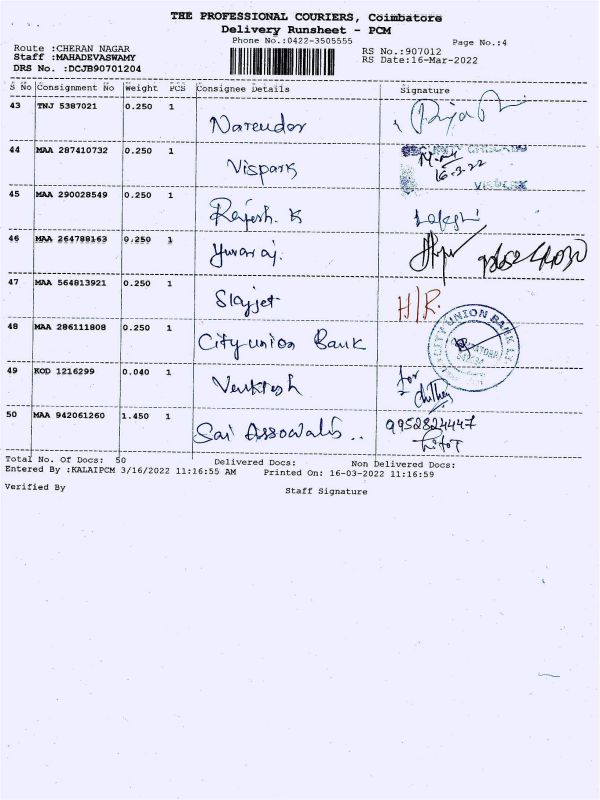 THE PROFESSIONAL COURIERS, Coimbatore
Delivery Runsheet - PCM
Phone No.:0422-3505555 Page No.:4
Route :CHERAN NAGAR RS No.:907012
Staff :MAHADEVASWAMY RS Date:16-Mar-2022
DRS No. :DCJB90701204
S No Consignment No Weight PCS Consignee Details Signature
43 TNJ 5387021 0.250 1
Narendor
44 MAA 287410732 0.250 1
Vispark 16-3-22
45 MAA 290028549 0.250 1
Rajesh. K
46 MAA 264788163 0.250 1
Yuvaraj.
47 MAA 564813921 0.250 1
Skyjet H/R.
48 MAA 286111808 0.250 1 CITY UNION BANK
City union Bank
49 KOD 1216299 0.040 1 for
Venktesh
50 MAA 942061260 1.450 1 9952824447
Sai
Total No. Of Docs: 50 Delivered Docs: Non Delivered Docs:
Entered By :KALAIPCM 3/16/2022 11:16:55 AM Printed On: 16-03-2022 11:16:59
Verified By Staff Signature